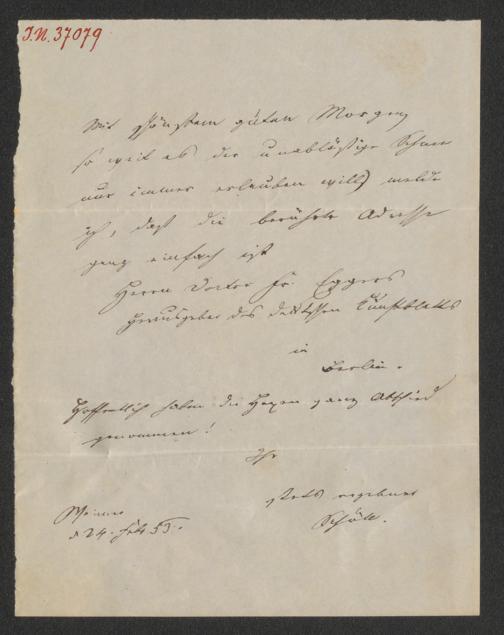 J.N. 37079
Mit schönstem guten Morgen
so weit es der unablässige Schnee
nur immer erlauben will) melde
ich, daß die berührte Adresse
ganz einfach ist
Herrn Doctor Fr. Eggers
Herausgeber des deutschen Kunstblatts
in
Berlin.
Hoffentlich haben die Hexen ganz Abschied
genommen!
Ihr
stets ergebener
Schöll.
Weimar
d 24. Feb 53.